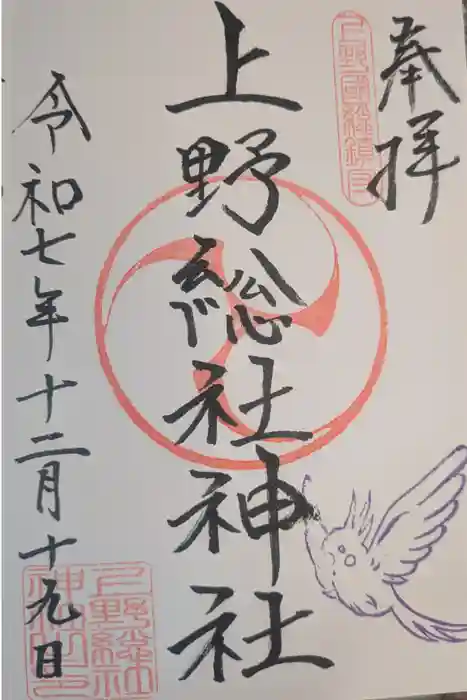 奉拝
上野國総鎮守
上野総社神社
令和七年十二月十九日